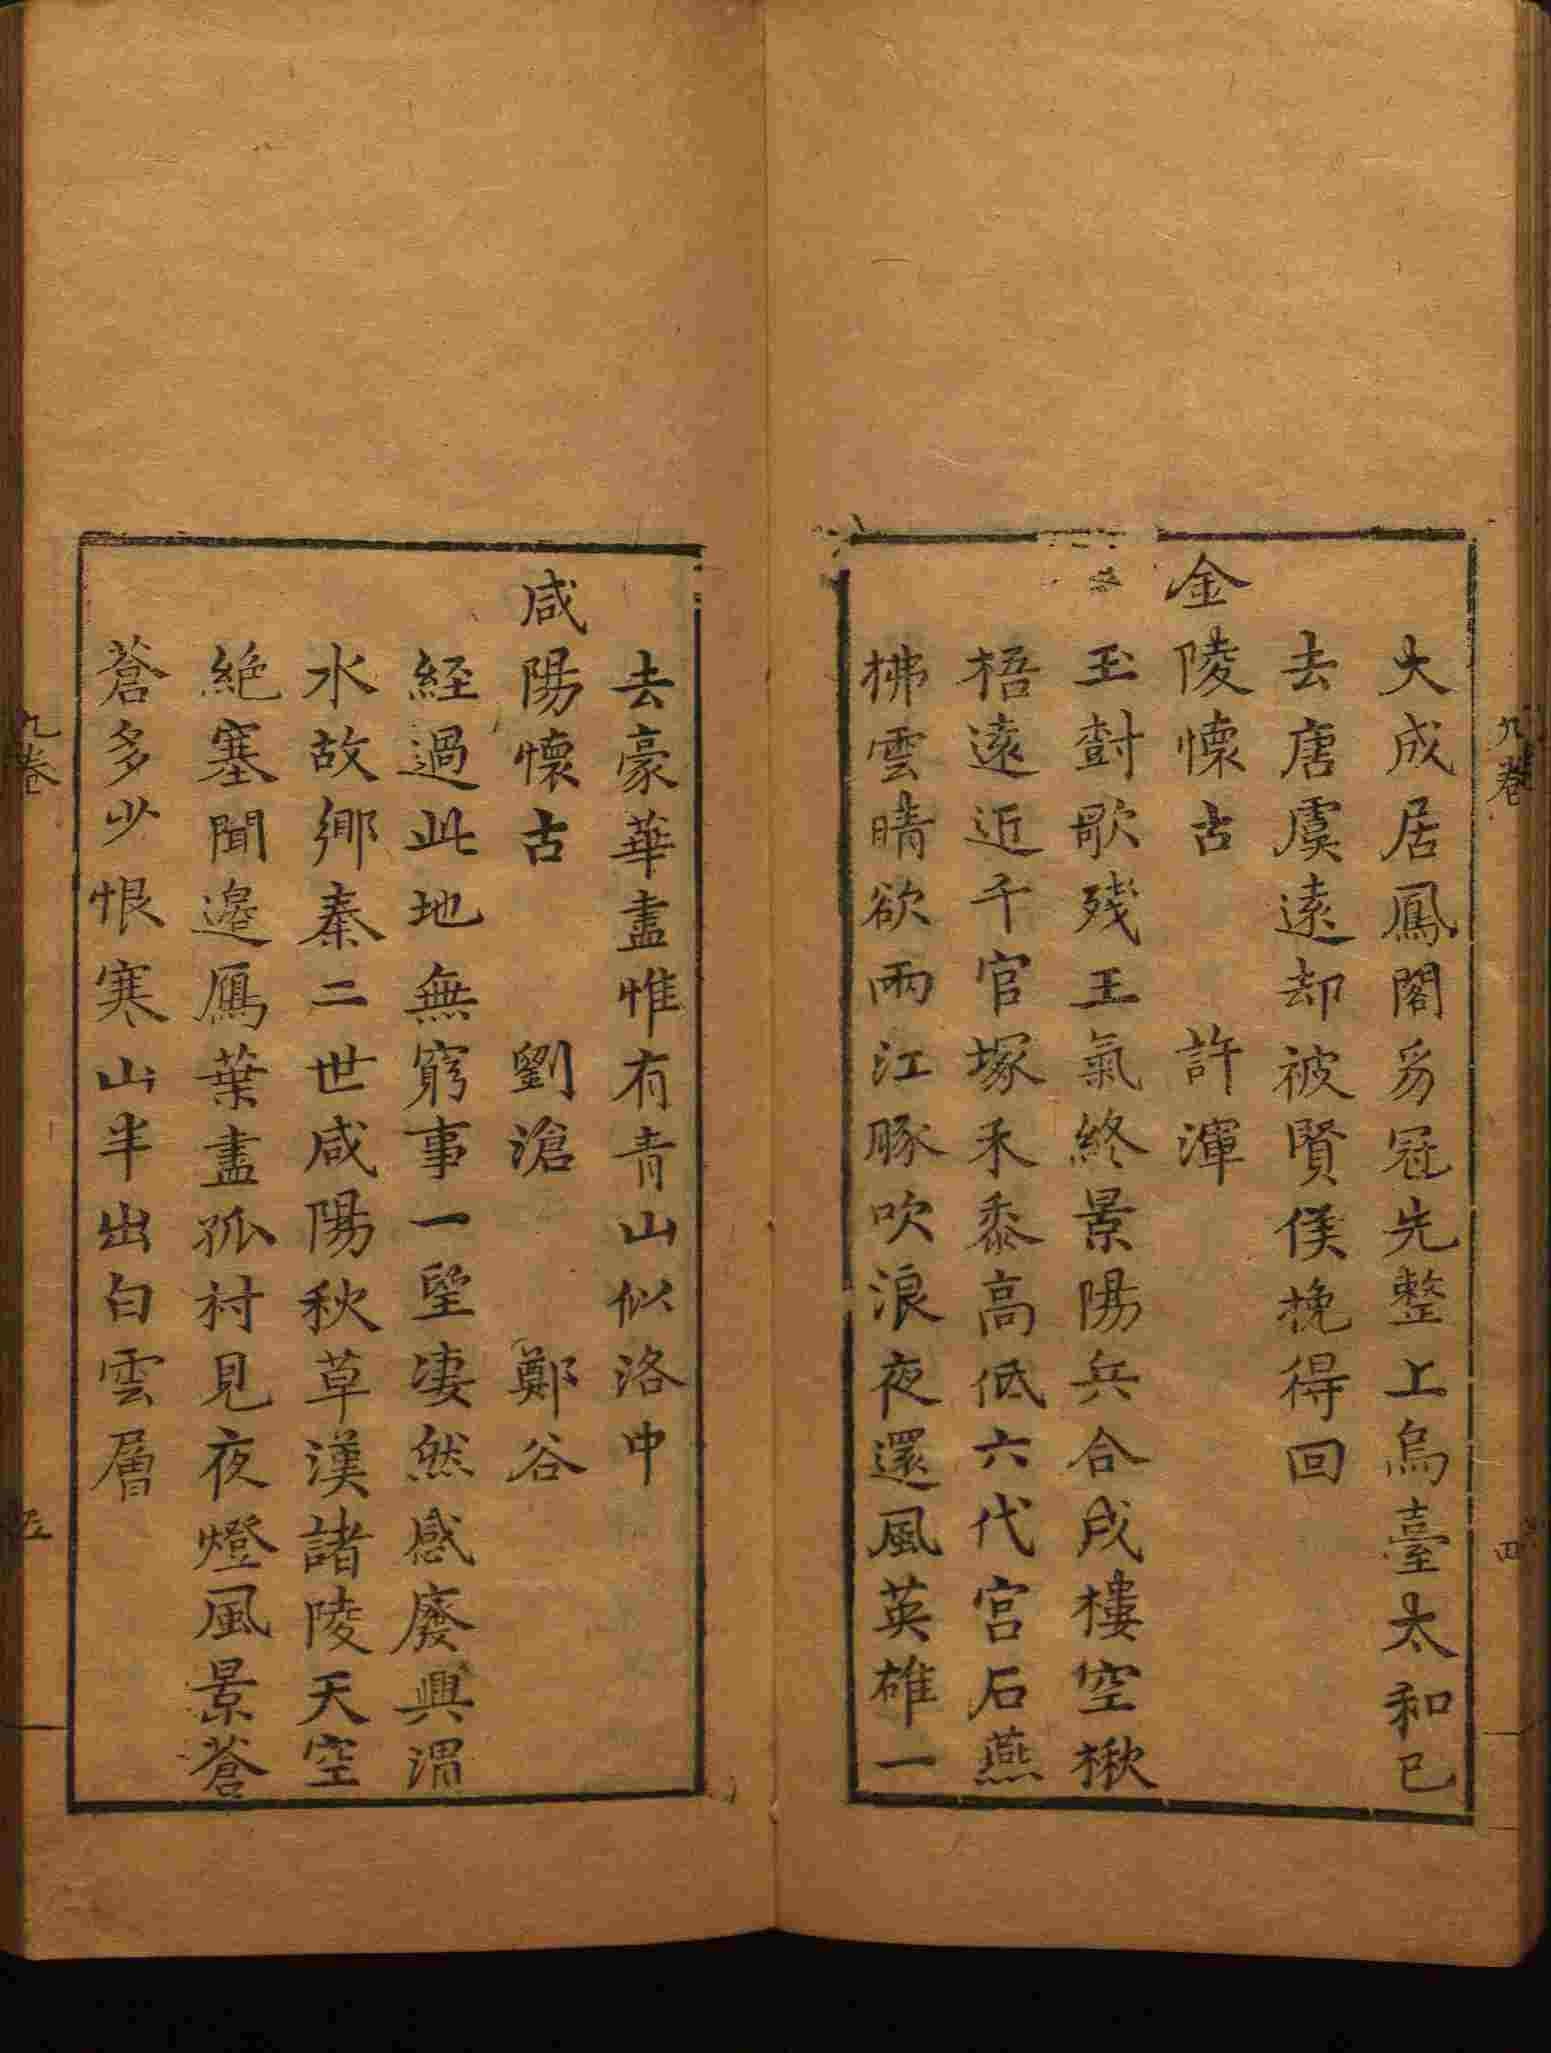 九卷
四
大成居鳳閣豸冠先整上烏臺太和已
去唐虞遠却被賢侯挽得回
金陵懷古　許渾
玉樹歌殘王氣終景陽兵合戍樓空楸
梧遠近千官塚禾黍高低六代宮石燕
拂雲晴欲雨江豚吹浪夜還風英雄一
去豪華盡惟有青山似洛中
咸陽懷古　劉滄　鄭谷
經過此地無窮事一望凄然感廢興渭
水故鄉秦二世咸陽秋草漢諸陵天空
絶塞聞邉鴈葉盡孤村見夜燈風景蒼
蒼多少恨寒山半出白雲層
九卷
五